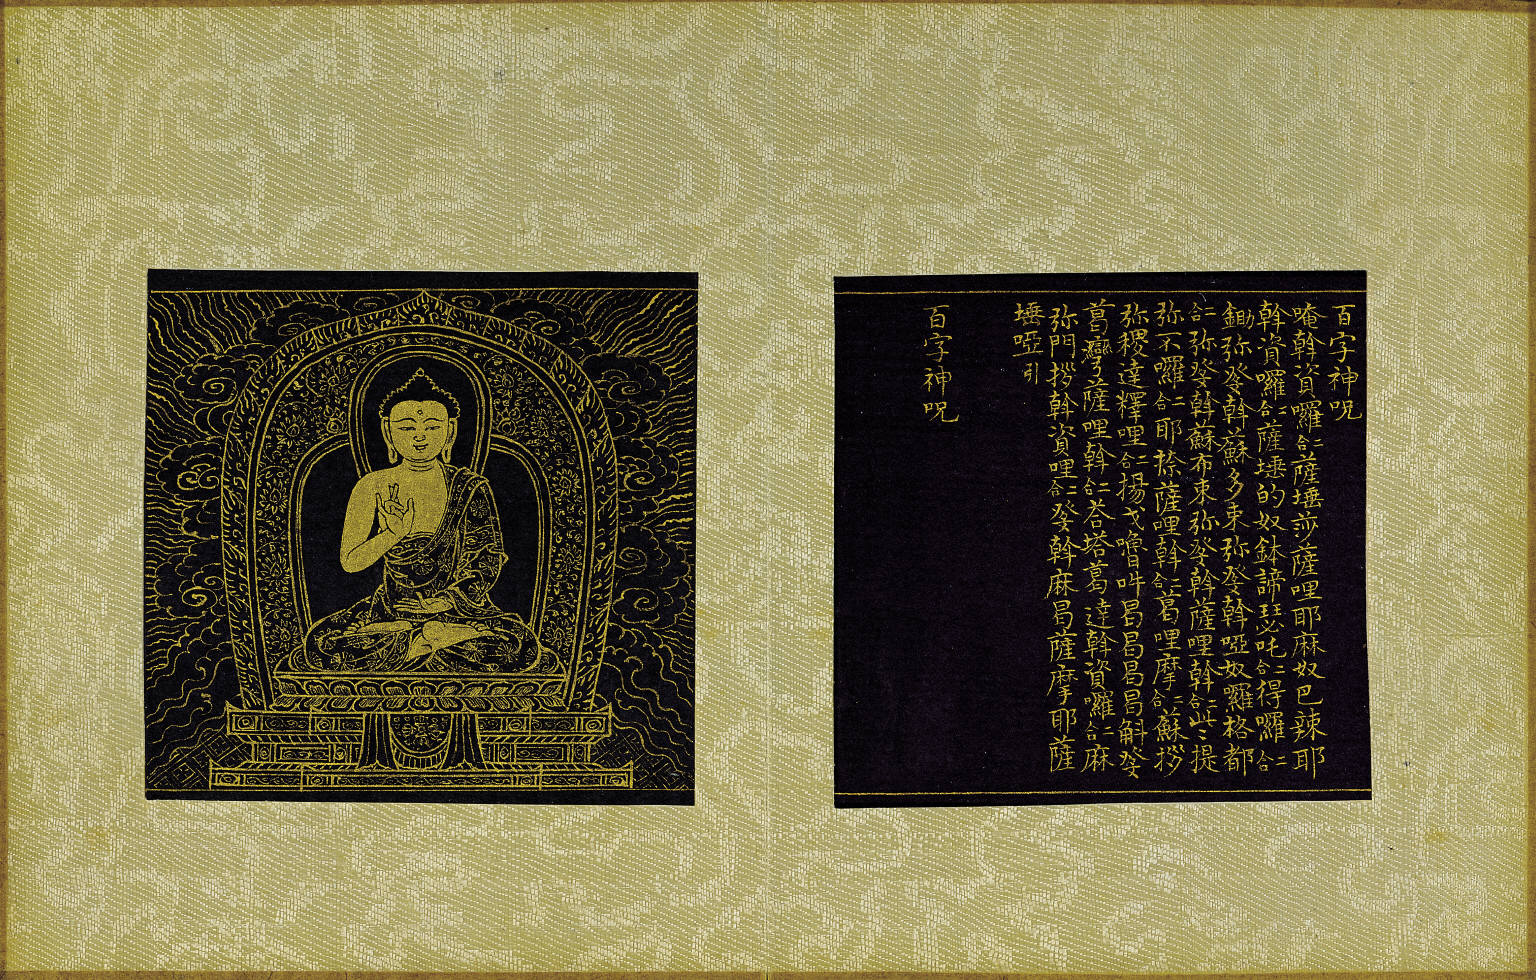 百字神呪
唵斡資囉二合薩埵莎薩哩耶麻奴巴辣耶
斡資囉二合薩埵的奴鉢諦瑟吒二合得囉二合
鋤弥癹斡蘇多束弥癹斡啞奴囉格都
二合弥癹斡蘇布束弥癹斡薩哩斡二合提
弥不囉二合耶捺薩哩斡二合葛哩摩二合蘇拶
弥稷達釋哩二合揚戈嚕吽曷曷曷曷斛癹
葛灣薩哩斡二合荅塔葛達斡資囉二合麻
弥門拶斡資哩二合癹斡麻曷薩摩耶薩
埵啞引
百字神呪